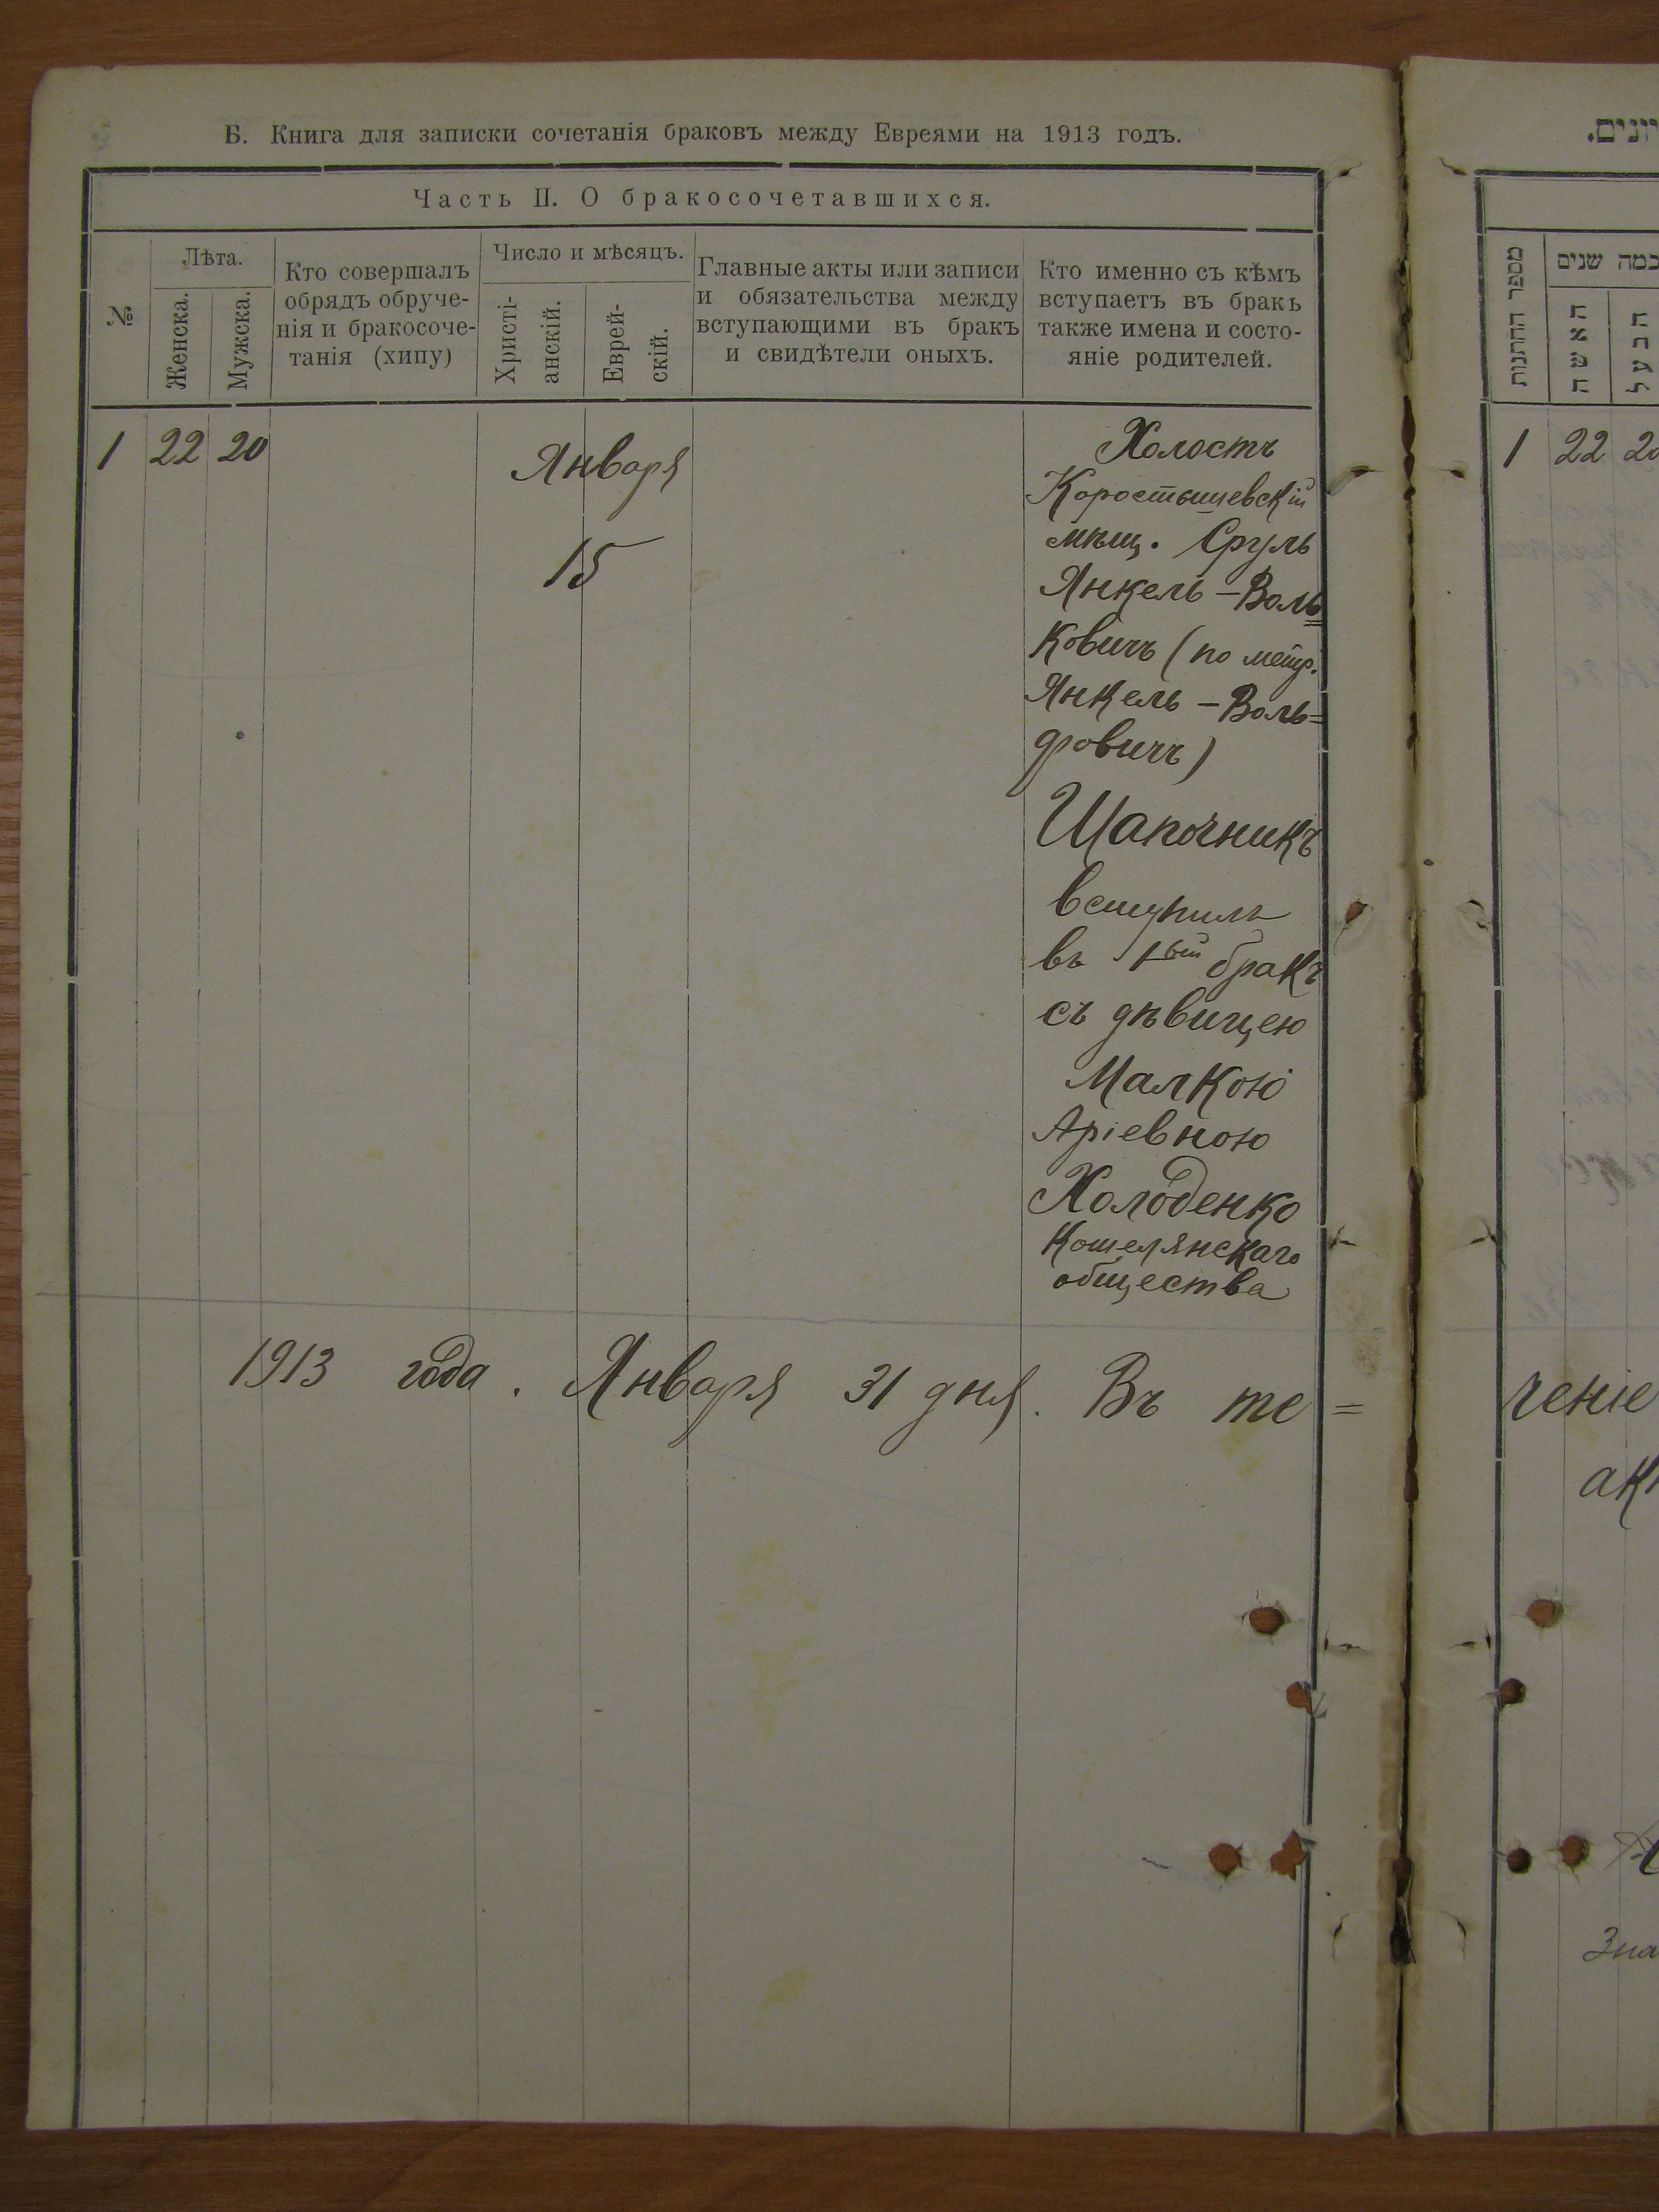 Б. Книга для записки сочетанія браковъ между Евреями на 1913 годъ.
Часть II. О бракосочетавшихся.
№
Лѣта.
Женска.
Мужска.
Кто совершалъ
обрядъ обруче-
нія и бракосоче-
танія (хипу)
Число и мѣсяцъ.
Христі-
анскій.
Еврей-
скій.
Главные акты или записи
и обязательства между
вступающими въ бракъ
и свидѣтели оныхъ.
Кто именно съ кѣмъ
вступаетъ въ бракъ
также имена и состо-
яніе родителей.
1 22 20
Января
15
Холостъ
Коростышевскій
мѣщ. Сруль
Янкель-Воль=
ковичъ (по метр.
Янкель-Воль=
фовичъ)
Шапочникъ
вступилъ
въ 1ый бракъ
съ дѣвицею
Малкою
Аріевною
Холоденко
Кошелянскаго
общества
1913 года. Января 31 дня. Въ те=
יונים.
מספר החתנות
כמה שנים
האשה
הבעל
1 22 20
ченіе
ак